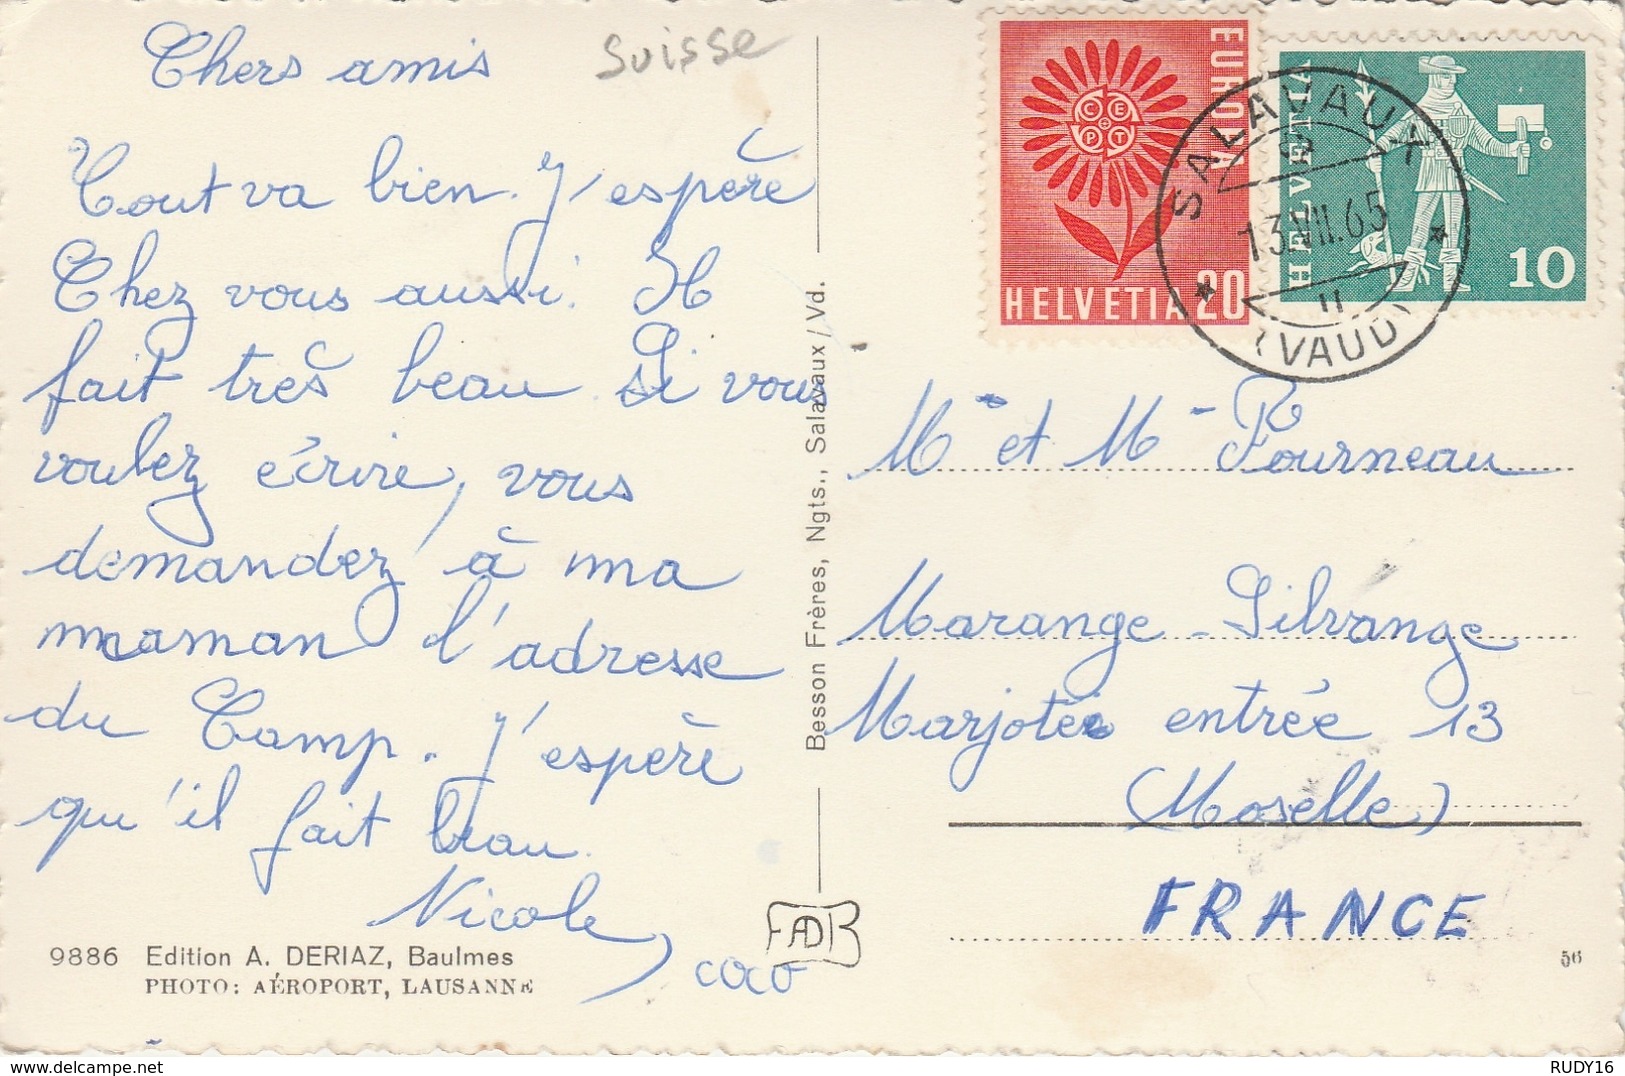 Suisse
Chers amis
Tout va bien. J'espère
Chez vous aussi. Il
fait très beau. Si vous
voulez écrire, vous
demandez à ma
maman l'adresse
du Camp. J'espère
qu'il fait beau.
Nicole,
coco
9886 Edition A. DERIAZ, Baulmes
PHOTO: AÉROPORT, LAUSANNE
Besson Frères, Ngts., Salavaux / Vd.
EUROPA
CEPT
HELVETIA 20
HELVETIA
10
SALAVAUX
13.VII.65
(VAUD)
Mr et Mr Fourneau
Marange-Silvange
Marjotée entrée 13
(Moselle)
FRANCE
56
delcampe.net
RUDY16